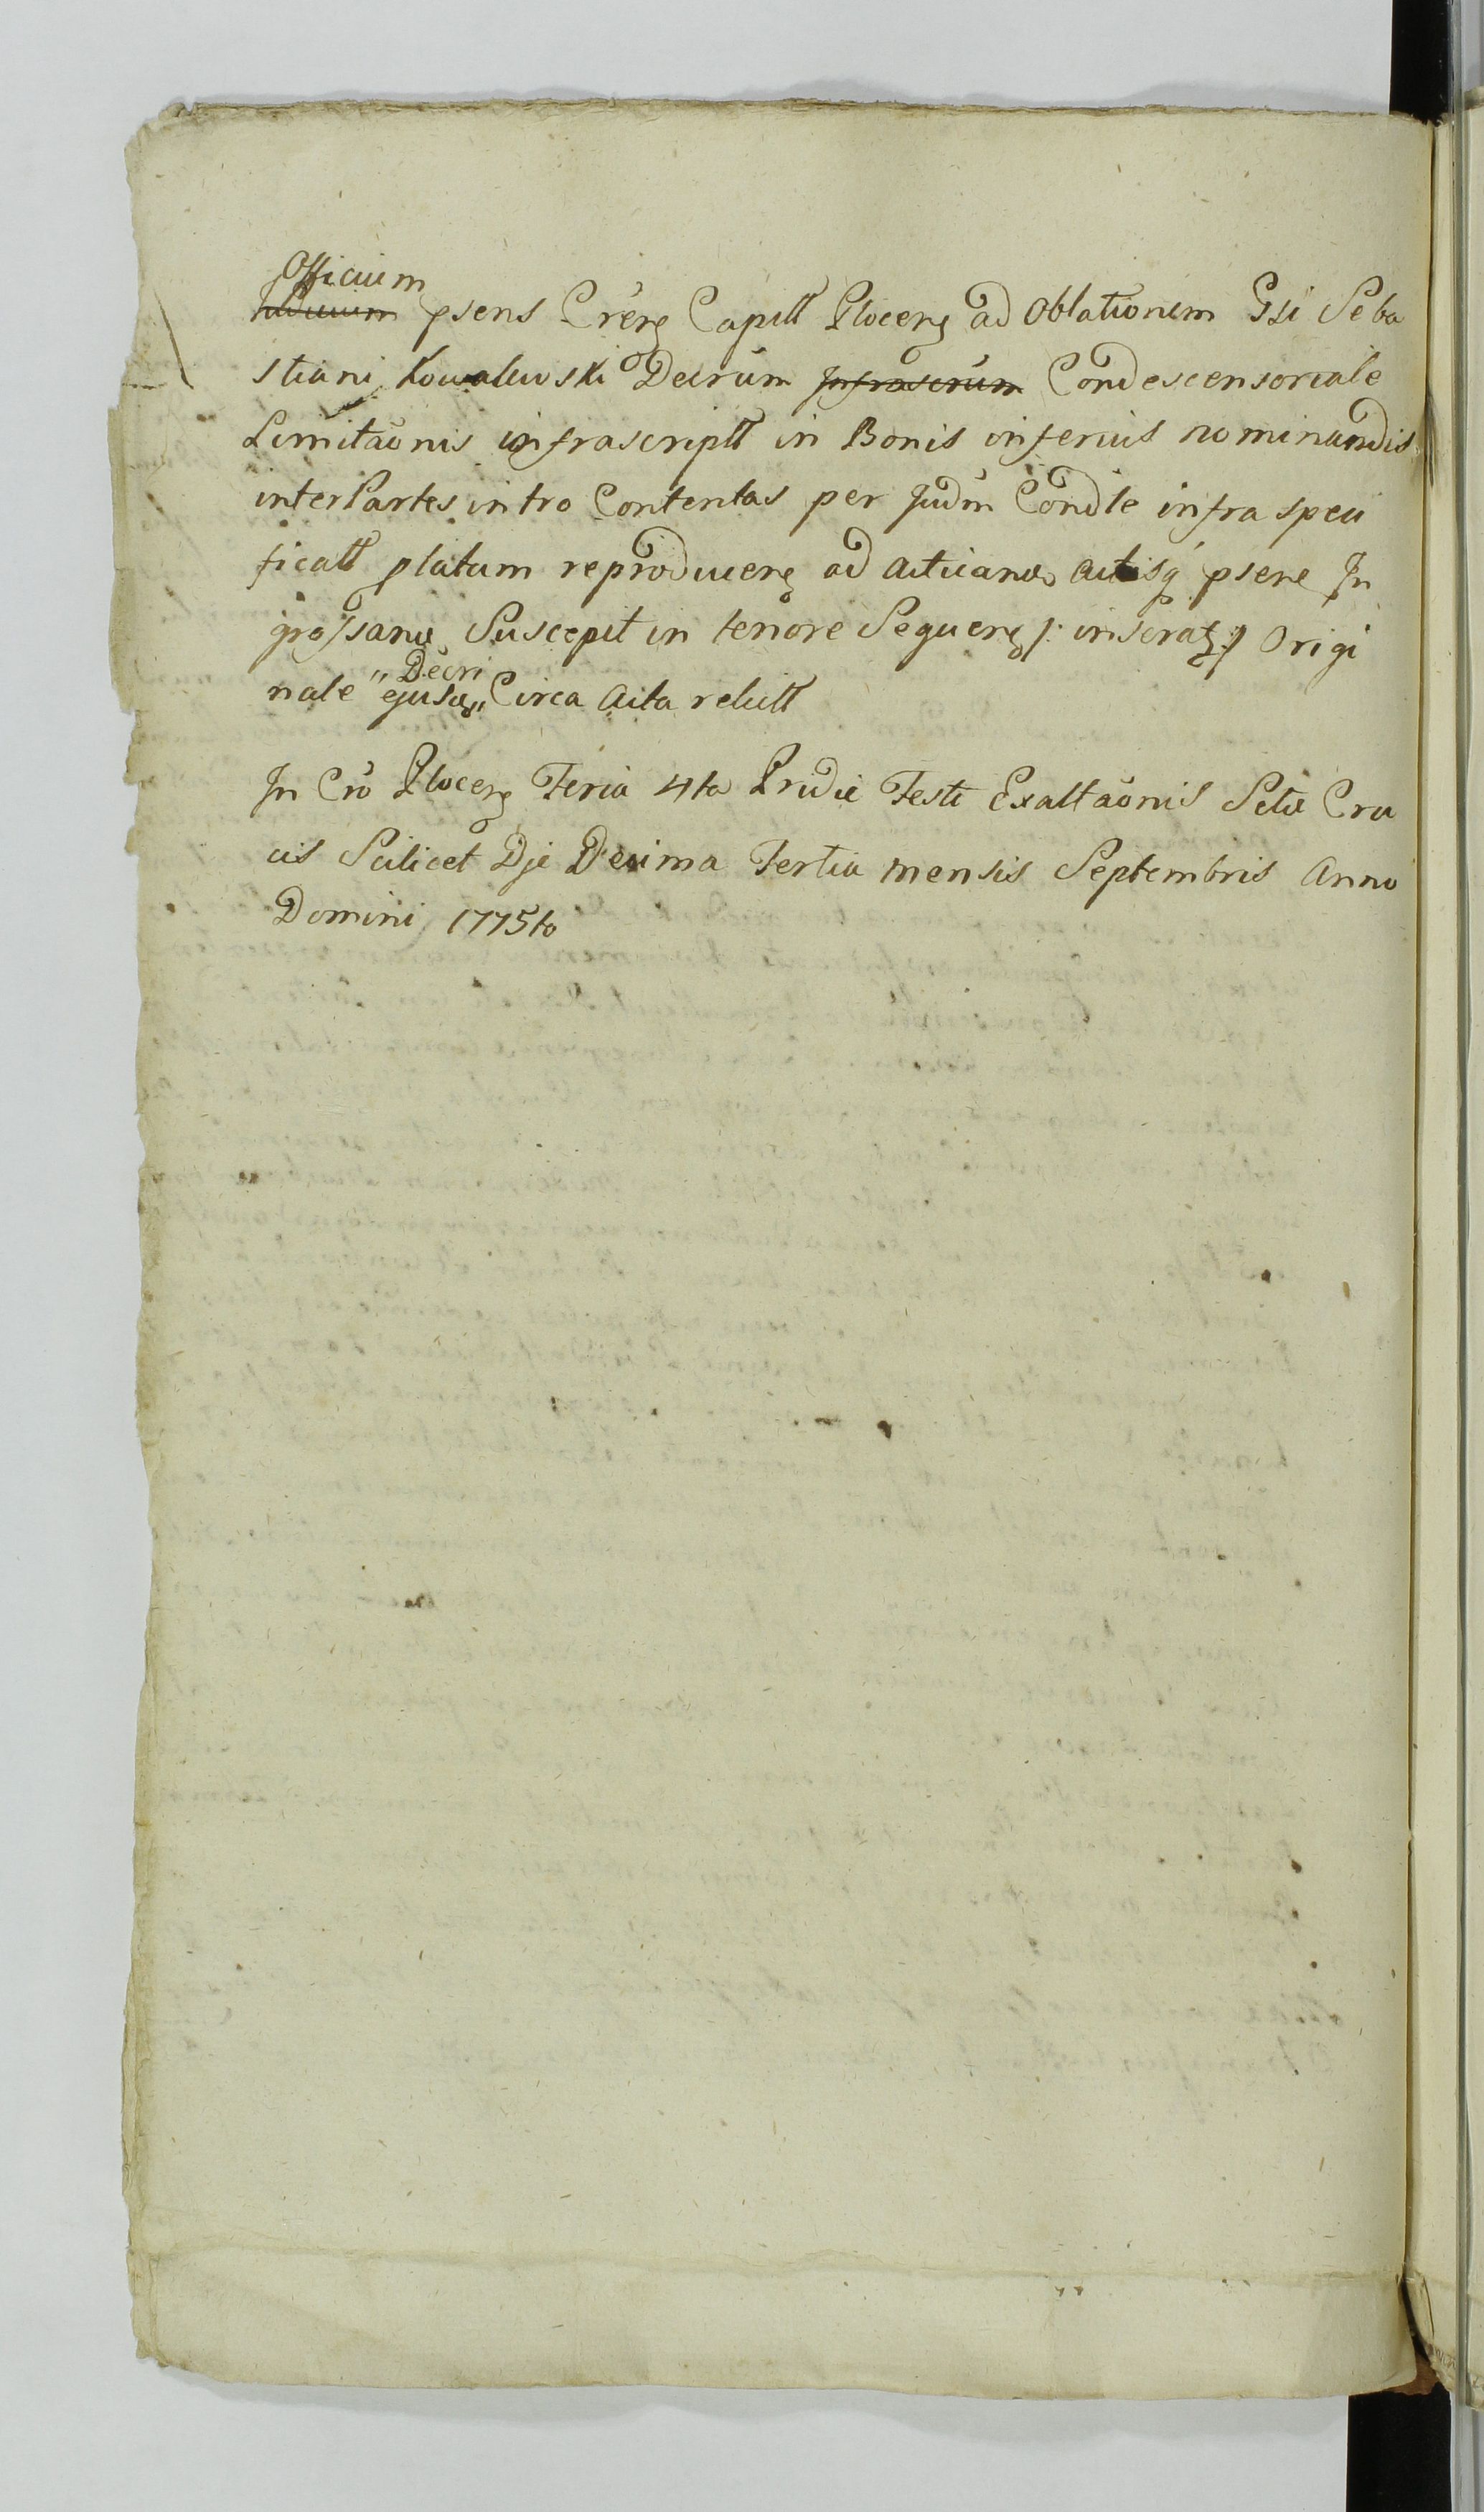 Officium
psens Crẽrę Capitt Plocenę ad Oblationem Gsi Seba
stiani Kowalewski Decrũm Infrascrũm Condescensoriale
Limitaõnis infrascriptt in Bonis inferius nominandis
inter Partes intro Contentas per Judm̃ Condle infra speci
ficatt platum reproducenę ad acticand actisq psene In
grossand Suscepit in tenore Sequenę /: inseratę :/ Origi
Decri
nale " ejusd " Circa acta relictt
In Crõ Plocenę Feria 4ta Pridie Festi Exaltaõnis Sctæ Cru
cis Scilicet Die Decima Tertia mensis Septembris Anno
Domini 1775to